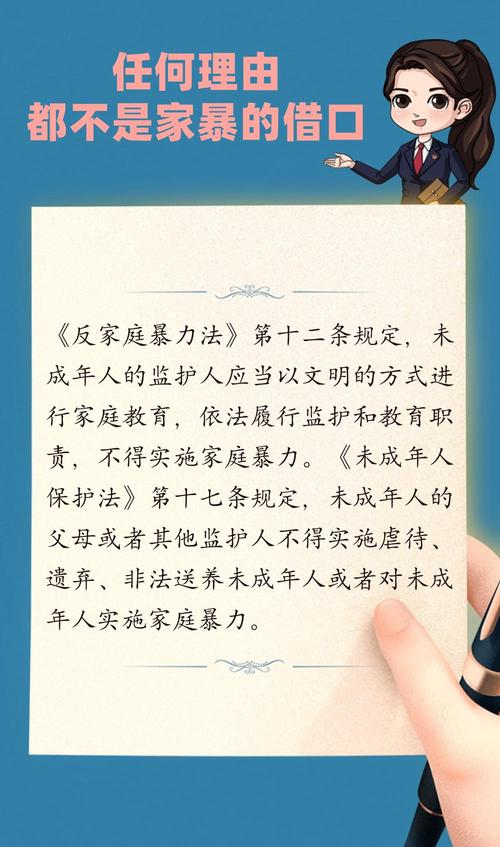 任何理由
都不是家暴的借口
《反家庭暴力法》第十二条规定，未
成年人的监护人应当以文明的方式进
行家庭教育，依法履行监护和教育职
责，不得实施家庭暴力。《未成年人
保护法》第十七条规定，未成年人的
父母或者其他监护人不得实施虐待、
遗弃、非法送养未成年人或者对未成
年人实施家庭暴力。